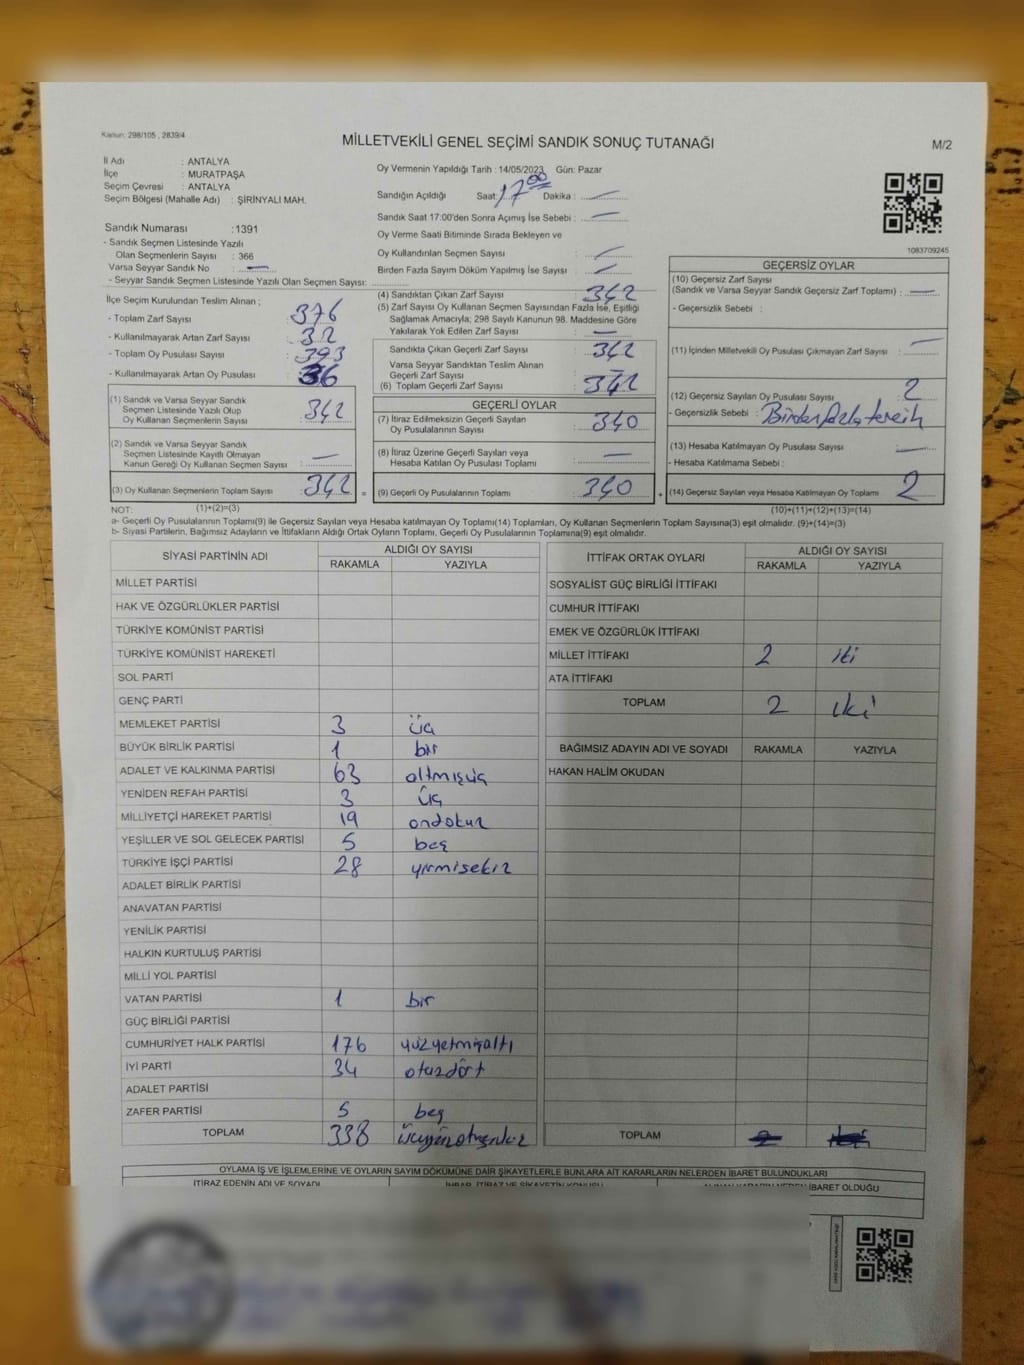 Kanun: 298/105 , 2839/4
MİLLETVEKİLİ GENEL SEÇİMİ SANDIK SONUÇ TUTANAĞI
M/2
İl Adı : ANTALYA
İlçe : MURATPAŞA
Seçim Çevresi : ANTALYA
Seçim Bölgesi (Mahalle Adı) : ŞİRİNYALI MAH.
Oy Vermenin Yapıldığı Tarih : 14/05/2023 Gün: Pazar
Sandığın Açıldığı Saat: 17 00 Dakika : —
Sandık Saat 17:00'den Sonra Açımış İse Sebebi : —
Oy Verme Saati Bitiminde Sırada Bekleyen ve
Oy Kullandırılan Seçmen Sayısı : —
Birden Fazla Sayım Döküm Yapılmış İse Sayısı : —
1083709245
Sandık Numarası : 1391
- Sandık Seçmen Listesinde Yazılı
Olan Seçmenlerin Sayısı : 366
Varsa Seyyar Sandık No : —
- Seyyar Sandık Seçmen Listesinde Yazılı Olan Seçmen Sayısı:
İlçe Seçim Kurulundan Teslim Alınan ;
- Toplam Zarf Sayısı : 376
- Kullanılmayarak Artan Zarf Sayısı : 32
- Toplam Oy Pusulası Sayısı : 393
- Kullanılmayarak Artan Oy Pusulası : 36
(1) Sandık ve Varsa Seyyar Sandık
Seçmen Listesinde Yazılı Olup
Oy Kullanan Seçmenlerin Sayısı : 342
(2) Sandık ve Varsa Seyyar Sandık
Seçmen Listesinde Kayıtlı Olmayan
Kanun Gereği Oy Kullanan Seçmen Sayısı : —
(3) Oy Kullanan Seçmenlerin Toplam Sayısı : 342 =
(4) Sandıktan Çıkan Zarf Sayısı : 342
(5) Zarf Sayısı Oy Kullanan Seçmen Sayısından Fazla İse, Eşitliği
Sağlamak Amacıyla; 298 Sayılı Kanunun 98. Maddesine Göre
Yakılarak Yok Edilen Zarf Sayısı : —
Sandıkta Çıkan Geçerli Zarf Sayısı : 342
Varsa Seyyar Sandıktan Teslim Alınan
Geçerli Zarf Sayısı : —
(6) Toplam Geçerli Zarf Sayısı : 342
GEÇERLİ OYLAR
(7) İtiraz Edilmeksizin Geçerli Sayılan
Oy Pusulalarının Sayısı : 340
(8) İtiraz Üzerine Geçerli Sayılan veya
Hesaba Katılan Oy Pusulası Toplamı : —
(9) Geçerli Oy Pusulalarının Toplamı : 340 +
GEÇERSİZ OYLAR
(10) Geçersiz Zarf Sayısı
(Sandık ve Varsa Seyyar Sandık Geçersiz Zarf Toplamı) : —
- Geçersizlik Sebebi :
(11) İçinden Milletvekili Oy Pusulası Çıkmayan Zarf Sayısı : —
(12) Geçersiz Sayılan Oy Pusulası Sayısı : 2
- Geçersizlik Sebebi : Birden fazla tercih
(13) Hesaba Katılmayan Oy Pusulası Sayısı : —
- Hesaba Katılmama Sebebi :
(14) Geçersiz Sayılan veya Hesaba Katılmayan Oy Toplamı : 2
NOT: (1)+(2)=(3)
(10)+(11)+(12)+(13)=(14)
a- Geçerli Oy Pusulalarının Toplamı(9) ile Geçersiz Sayılan veya Hesaba katılmayan Oy Toplamı(14) Toplamları, Oy Kullanan Seçmenlerin Toplam Sayısına(3) eşit olmalıdır. (9)+(14)=(3)
b- Siyasi Partilerin, Bağımsız Adayların ve İttifakların Aldığı Ortak Oyların Toplamı, Geçerli Oy Pusulalarının Toplamına(9) eşit olmalıdır.
SİYASİ PARTİNİN ADI ALDIĞI OY SAYISI
RAKAMLA YAZIYLA
MİLLET PARTİSİ
HAK VE ÖZGÜRLÜKLER PARTİSİ
TÜRKİYE KOMÜNİST PARTİSİ
TÜRKİYE KOMÜNİST HAREKETİ
SOL PARTİ
GENÇ PARTİ
MEMLEKET PARTİSİ 3 üç
BÜYÜK BİRLİK PARTİSİ 1 bir
ADALET VE KALKINMA PARTİSİ 63 altmışüç
YENİDEN REFAH PARTİSİ 3 üç
MİLLİYETÇİ HAREKET PARTİSİ 19 ondokuz
YEŞİLLER VE SOL GELECEK PARTİSİ 5 beş
TÜRKİYE İŞÇİ PARTİSİ 28 yirmisekiz
ADALET BİRLİK PARTİSİ
ANAVATAN PARTİSİ
YENİLİK PARTİSİ
HALKIN KURTULUŞ PARTİSİ
MİLLİ YOL PARTİSİ
VATAN PARTİSİ 1 bir
GÜÇ BİRLİĞİ PARTİSİ
CUMHURİYET HALK PARTİSİ 176 yüzyetmişaltı
İYİ PARTİ 34 otuzdört
ADALET PARTİSİ
ZAFER PARTİSİ 5 beş
TOPLAM 338 üçyüzotuzsekiz
İTTİFAK ORTAK OYLARI ALDIĞI OY SAYISI
RAKAMLA YAZIYLA
SOSYALİST GÜÇ BİRLİĞİ İTTİFAKI
CUMHUR İTTİFAKI
EMEK VE ÖZGÜRLÜK İTTİFAKI
MİLLET İTTİFAKI 2 iki
ATA İTTİFAKI
TOPLAM 2 iki
BAĞIMSIZ ADAYIN ADI VE SOYADI RAKAMLA YAZIYLA
HAKAN HALİM OKUDAN
TOPLAM
OYLAMA İŞ VE İŞLEMLERİNE VE OYLARIN SAYIM DÖKÜMÜNE DAİR ŞİKAYETLERLE BUNLARA AİT KARARLARIN NELERDEN İBARET BULUNDUKLARI
İTİRAZ EDENİN ADI VE SOYADI
İHBAR, İTİRAZ VE ŞİKAYETİN KONUSU
ALINAN KARARIN NEDEN İBARET OLDUĞU